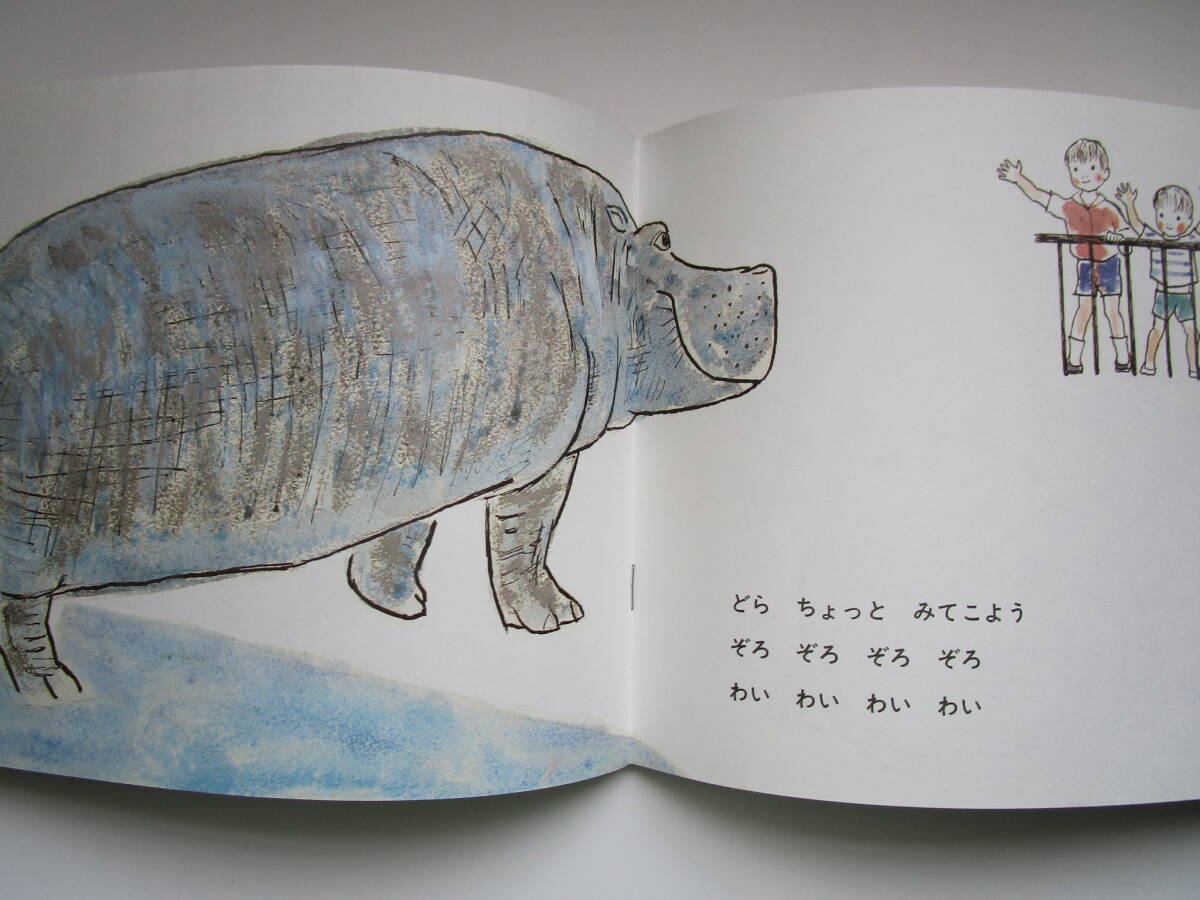 どら　ちょっと　みてこよう
ぞろ　ぞろ　ぞろ　ぞろ
わい　わい　わい　わい